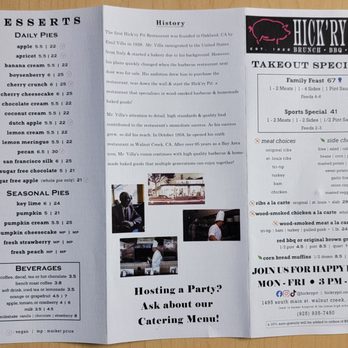 DESSERTS
DAILY PIES
apple 5.5 | 22
apricot 5.5 | 22
banana cream 5.5 | 22
boysenberry 6 | 25
cherry crunch 6 | 25
cherry cheesecake 6 | 25
chocolate cream 5.5 | 22
coconut cream 5.5 | 22
dutch apple 5.5 | 22
lemon cream 5.5 | 22
lemon meringue 5.5 | 22
pecan 6.5 | 30
san francisco silk 6 | 25
sugar free chocolate 5 | 21
sugar free apple (whole pie only) 21
SEASONAL PIES
key lime 6 | 24
pumpkin 5 | 21
pumpkin cream 5.5 | 25
pumpkin cheesecake MP | MP
fresh strawberry MP | MP
fresh peach MP | MP
BEVERAGES
coffee, decaf, tea or hot chocolate 3.5
french roast coffee 3.8
soft drink, iced tea or lemonade 3.5
orange or grapefruit 4.5 | 7
apple, tomato or cranberry 4.5 | 7
milk 3.5
milkshake vanilla | chocolate | strawberry 8
vegan | mp - market price
History
The first Hick'ry Pit Restaurant was founded in Oakland, CA by
Emil Villa in 1928. Mr. Villa immigrated to the United States
from Italy & started a bakery due to his background. However,
his plans quickly changed when the barbecue restaurant next
door was for sale. His ambition drew him to purchase the
restaurant, tear down the wall & start the Hick'ry Pit: a
restaurant that specializes in wood-smoked barbecue & homemade
baked goods!
Mr. Villa's attention to detail, high standards & quality food
contributed to the restaurant's immediate success. As his careers
grew, so did his reach. In October 1958, he opened his sixth
restaurant in Walnut Creek, CA. After over 60 years as a Bay Area
icon, Mr. Villa's vision continues with high quality barbecue & home
baked goods that multiple generations can enjoy together!
Hosting a Party?
Ask about our
Catering Menu!
HICK'RY
EST. 1928
BRUNCH • BBQ •
TAKEOUT SPECIAL
Family Feast 67
1 - 2 Meats | 1 - 4 Sides | 1 Pint Sauce
Feeds 4-6
Sports Special 41
1 - 2 Meats | 1 - 2 Sides | 1
Feeds 2-3
meat choices
original ribs
st. louis ribs
tri-tip
turkey
ham
chicken
ribs a la carte
wood-smoked chicken a la carte
wood-smoked meat a la
red bbq or original brown gr
corn bread muffins
JOIN US FOR HAPPY
MON - FRI 3 PM -
@hickrypit | hickrypit.com
1495 south main street, walnut creek,
(925) 935-7450